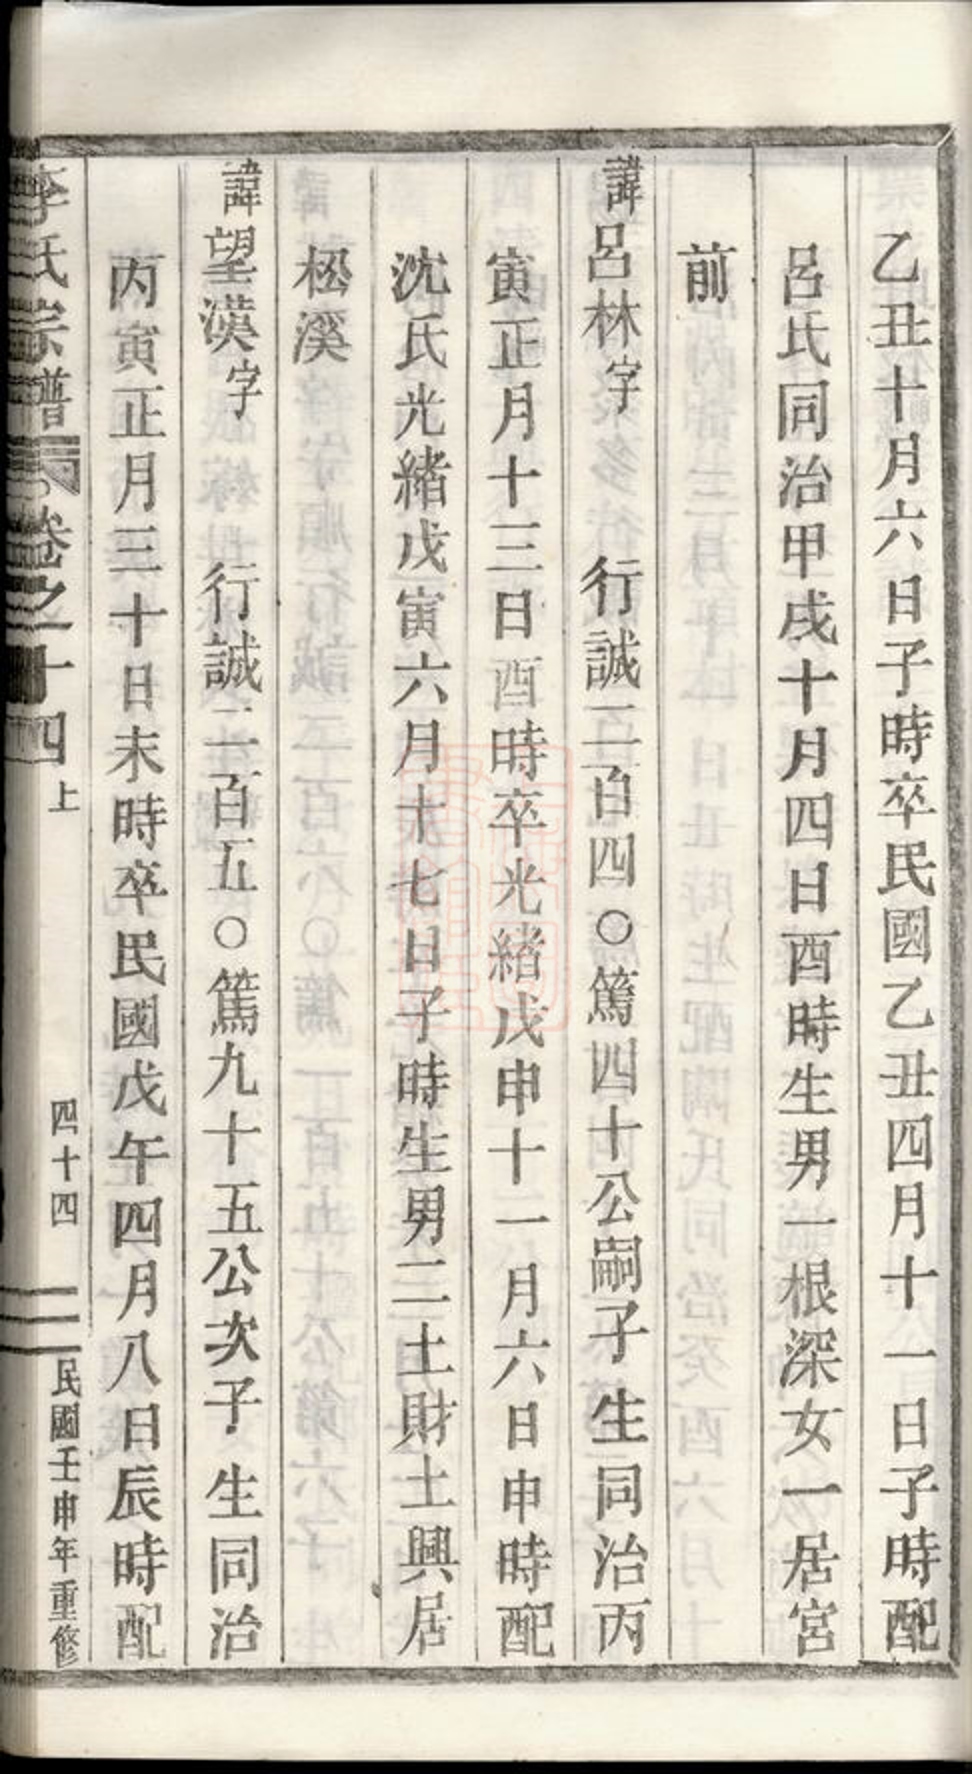 乙丑十月六日子時卒民國乙丑四月十一日子時配
呂氏同治甲戌十月四日酉時生男一根深女一居宮
前
諱呂林字 行誠二百四〇篤四十公嗣子生同治丙
寅正月十三日酉時卒光緒戊申十一月六日申時配
沈氏光緒戊寅六月十七日子時生男二土財土興居
松溪
諱望漢字 行誠二百五〇篤九十五公次子生同治
丙寅正月三十日未時卒民國戊午四月八日辰時配
李氏宗譜 卷之十四上 四十四 民國壬申年重修